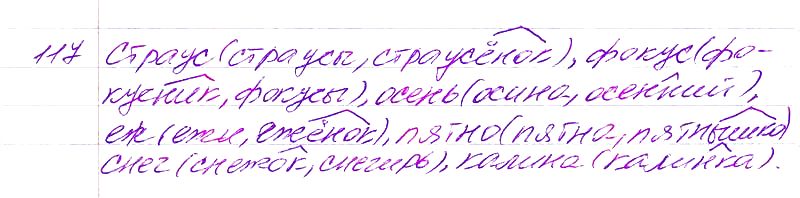 117 страус (страусы, страусёнок), фокус (фо-
кусник, фокусы), осень (осина, осенний),
ёж (ежи, ежёнок), пятно (пятна, пятнышко)
снег (снежок, снегирь), калина (калинка).